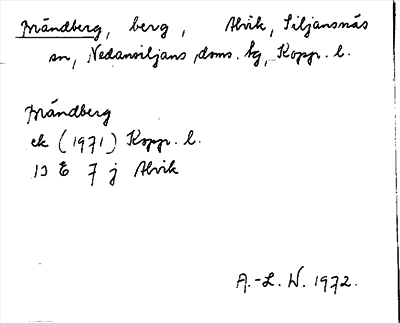 Brändberg, berg, Alvik, Siljansnäs
sn, Nedansiljans doms. tg, Kopp. l.
Brändberg
ek (1971) Kopp. l.
13 E 7 j Alvik
A.-L. W. 1972.